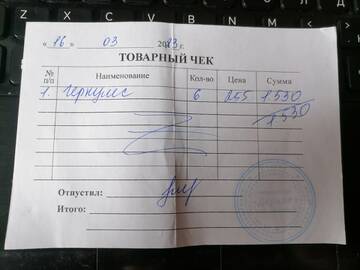 « 16 » 03 2023 г.
ТОВАРНЫЙ ЧЕК
№ п/п Наименование Кол-во Цена Сумма
1. Геркулес 6 255 1530
1530
Отпустил:
Итого: